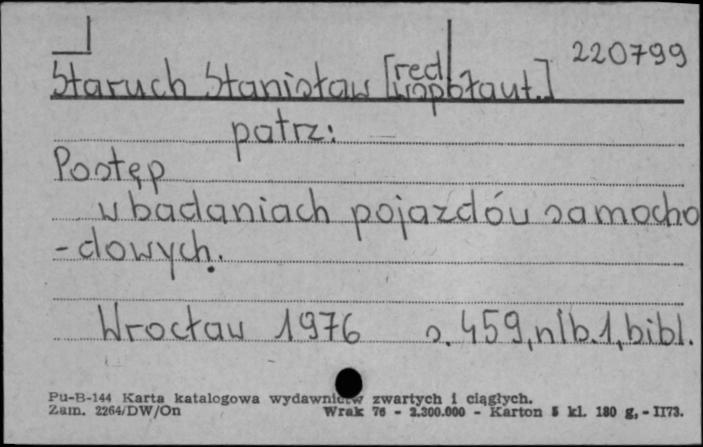 220799
Staruch Stanisław [red. i współaut.]
patrz:
Postęp
w badaniach pojazdów samocho
-dowych.
Wrocław 1976 s. 459, nlb. 1, bibl.
Pu-B-144 Karta katalogowa wydawnictw zwartych i ciągłych.
Zam. 2264/DW/On Wrak 76 - 2.300.000 - Karton 5 kl. 180 g, - II73.